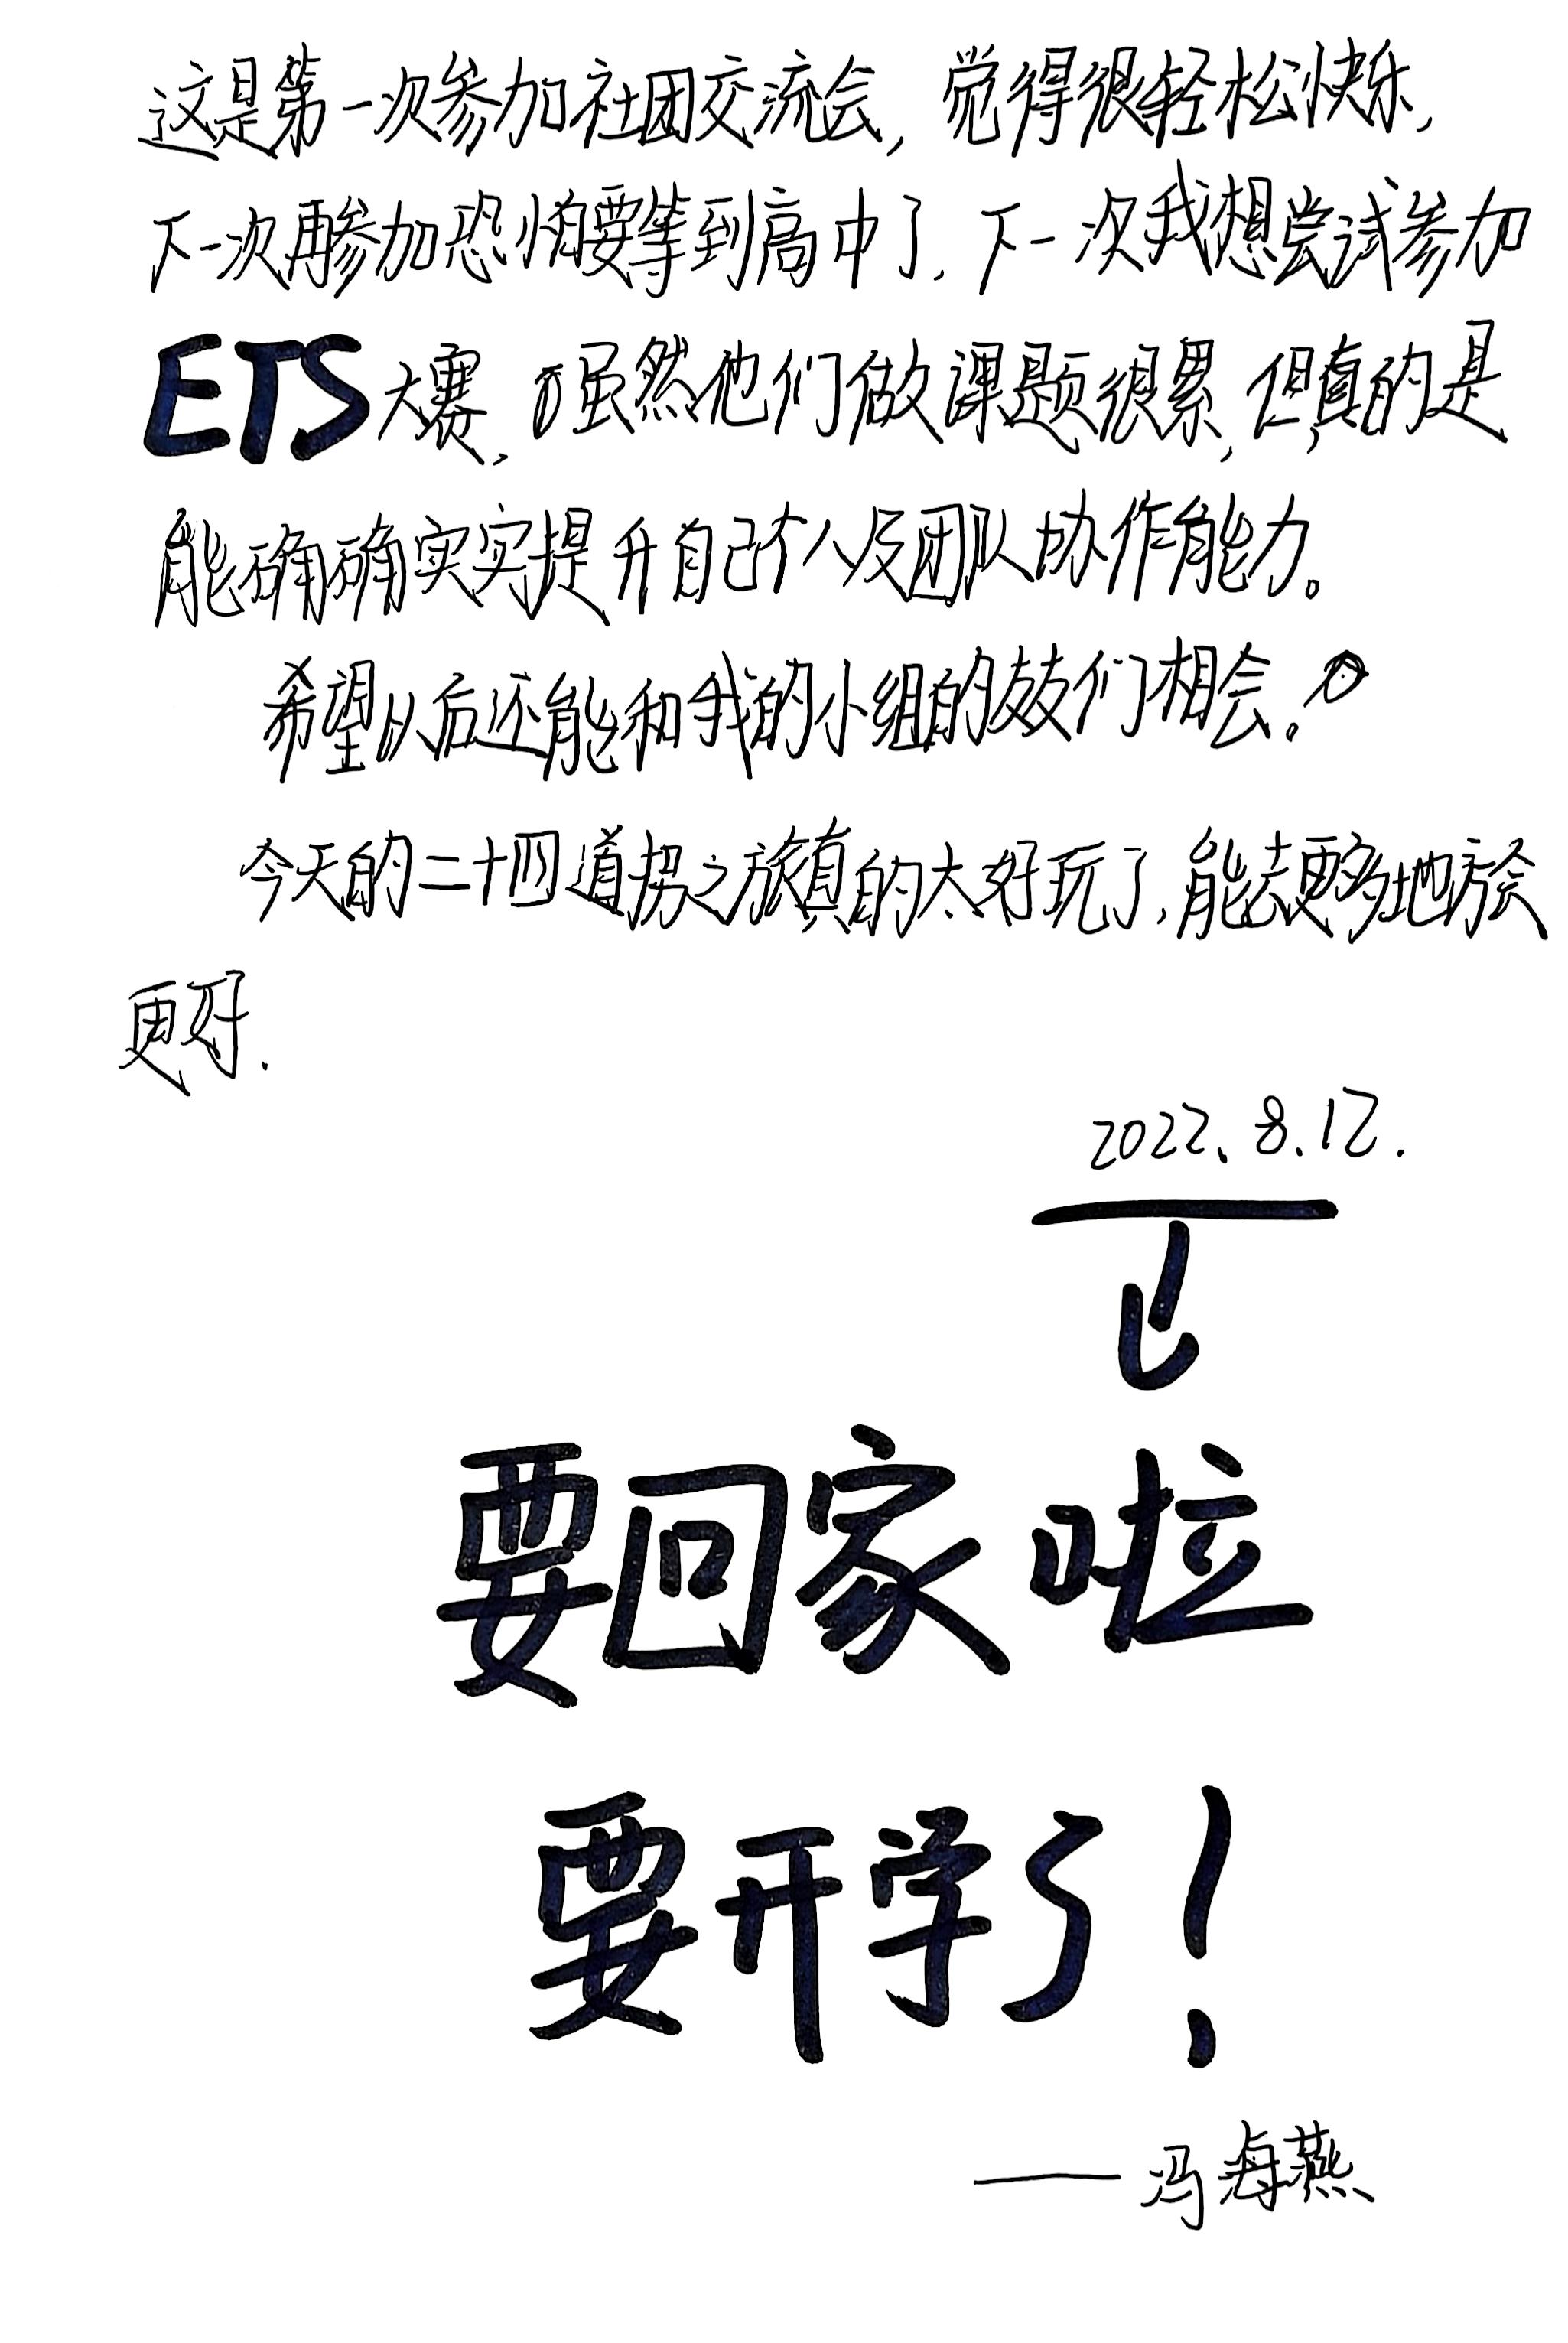 这是第一次参加社团交流会，觉得很轻松快乐，
下一次再参加恐怕要等到高中了，下一次我想尝试参加
ETS大赛，虽然他们做课题很累，但真的是
能确确实实提升自己个人及团队协作能力。
希望以后还能和我的小组的友友们相会。
今天的二十四道拐之旅真的太好玩了，能去更多地方会
更好.
2022.8.12.
要回家啦
要开学了！
——冯海燕